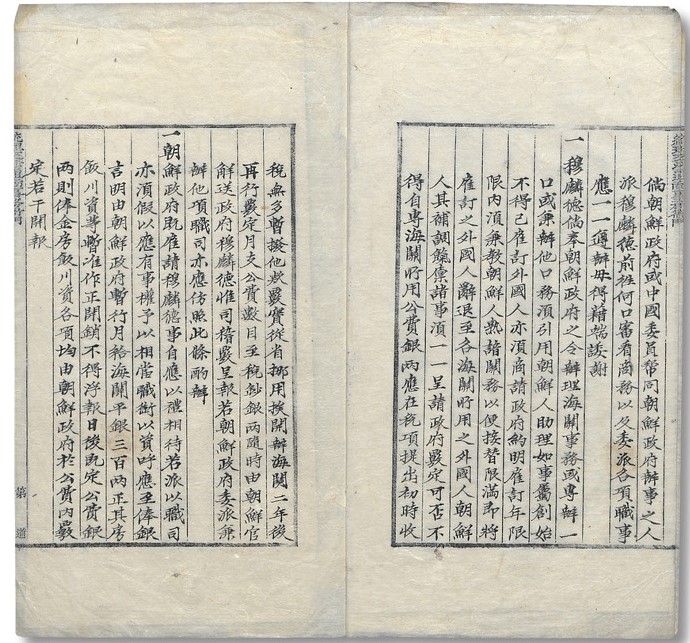 倘朝鮮政府或中國委員幫同朝鮮政府辦事之人
派穆麟德前往何口審看商務以及委派各項職事
應一一遵辦毋得藉端諉謝
一穆麟德倘奉朝鮮政府之令辦理海關事務或專辦一
口或兼辦他口務須引用朝鮮人助理如事屬創始
不得已雇訂外國人亦須商請政府約明雇訂年限
限內須兼教朝鮮人熟諳關務以便接替限滿即將
雇訂之外國人辭退至各海關所用之外國人朝鮮
人其補調諸事須一一呈請政府覈定可否不
得自專海關所用公費銀兩應在稅項提出初時收
稅無多暫撥他款覈實從省挪用挨開辦海關二年後
再行覈定月支公費數目至稅鈔銀兩隨時由朝鮮官
解送政府穆麟德惟司稽覈呈報若朝鮮政府委派兼
辦他項職司亦應仿照此條酌辦
一朝鮮政府既雇請穆麟德事自應以禮相待若派以職司
亦須假以應有事權予以相當職銜以資呼應至俸銀
言明由朝鮮政府暫行月給海關平銀三百兩正其房
飯川資等暫准作正開銷不得浮報日後既定公費銀
兩則俸金房飯川資各項均由朝鮮政府於公費內覈
定若干開報
第 道